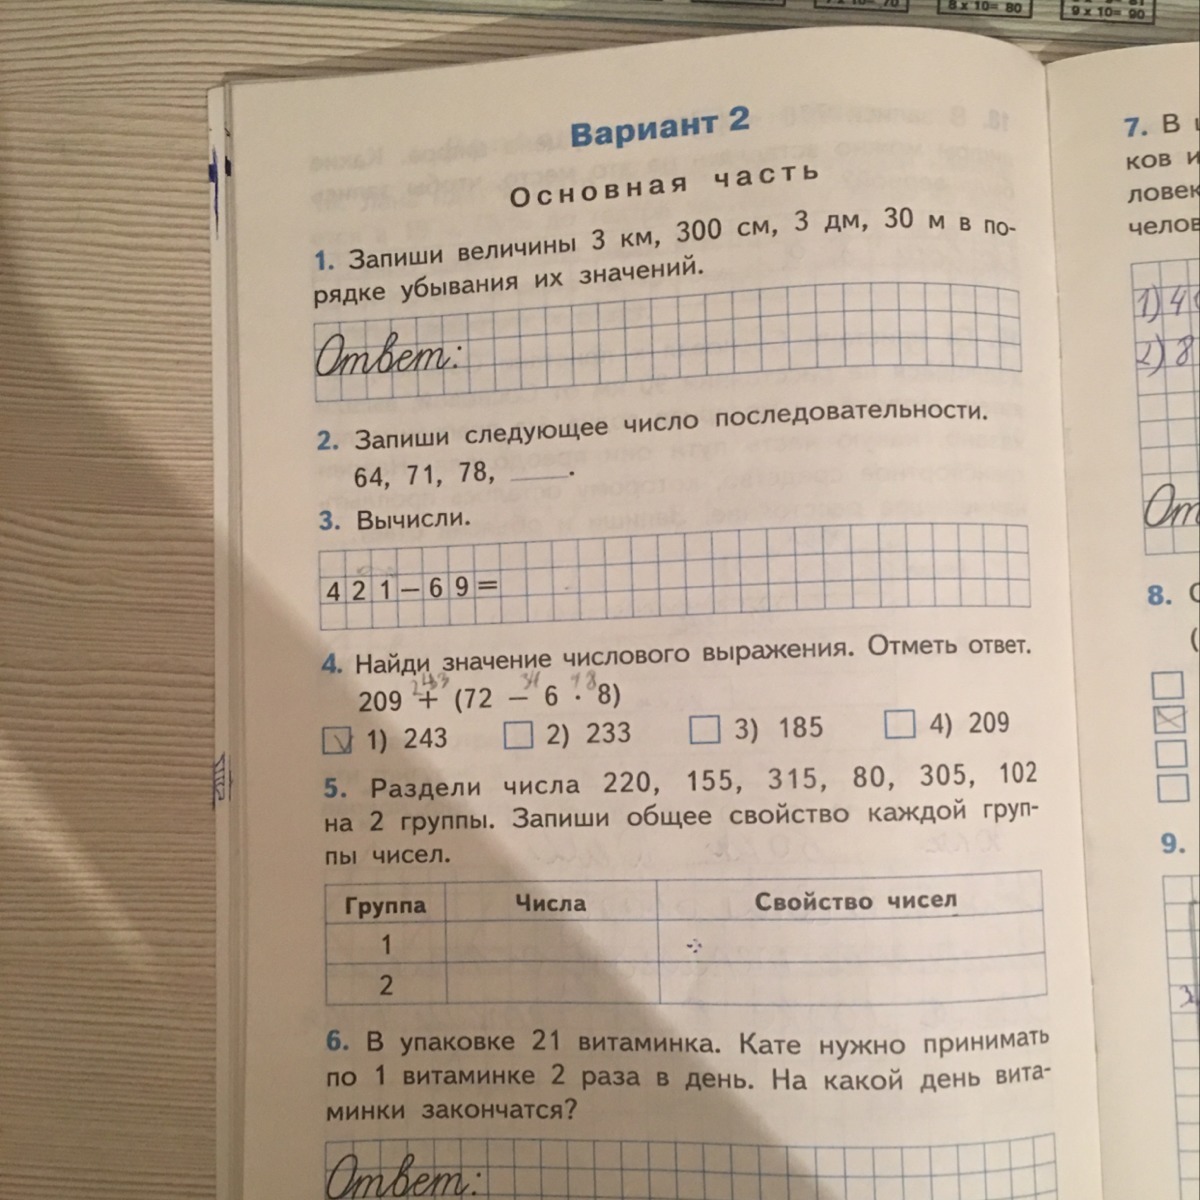 8 x 10= 80
9 x 10= 90
Вариант 2
Основная часть
1. Запиши величины 3 км, 300 см, 3 дм, 30 м в по-
рядке убывания их значений.
Ответ:
2. Запиши следующее число последовательности.
64, 71, 78, ____.
3. Вычисли.
421–69=
4. Найди значение числового выражения. Отметь ответ.
209 + (72 – 6 · 8)
1) 243 2) 233 3) 185 4) 209
5. Раздели числа 220, 155, 315, 80, 305, 102
на 2 группы. Запиши общее свойство каждой груп-
пы чисел.
Группа Числа Свойство чисел
1
2
6. В упаковке 21 витаминка. Кате нужно принимать
по 1 витаминке 2 раза в день. На какой день вита-
минки закончатся?
Ответ:
7. В
ков и
ловек
челов
1) 4
2) 8
От
8.
9.